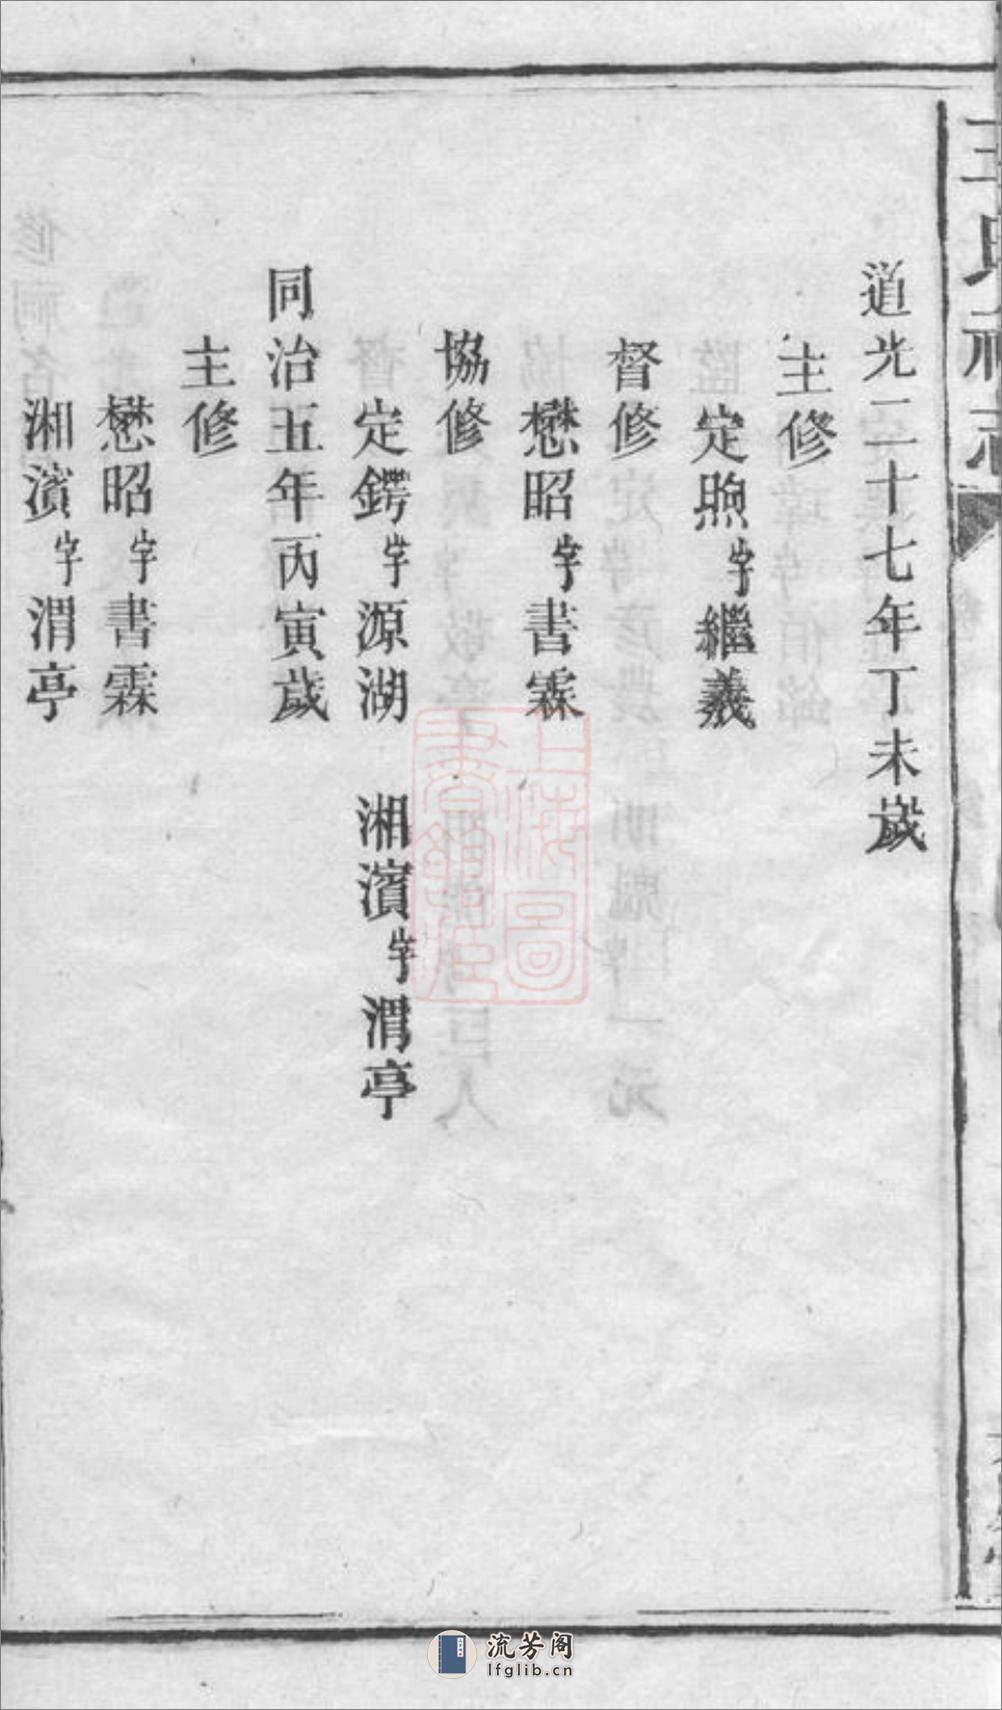 道光二十七年丁未歲
主修
定煦字繼羲
督修
懋昭字書霖
協修
定鍔字源湖　湘濱字渭亭
同治五年丙寅歲
主修
懋昭字書霖
湘濱字渭亭
上海圖書館藏
流芳阁
lfglib.cn